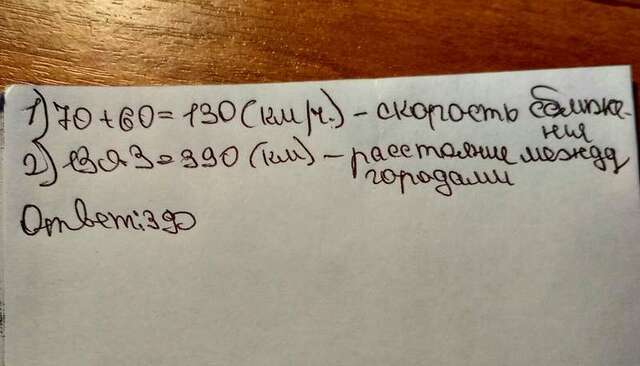 1) 70 + 60 = 130 (км/ч.) - скорость сближе-
ния
2) 130·3 = 390 (км) - расстояние между
городами
Ответ: 390